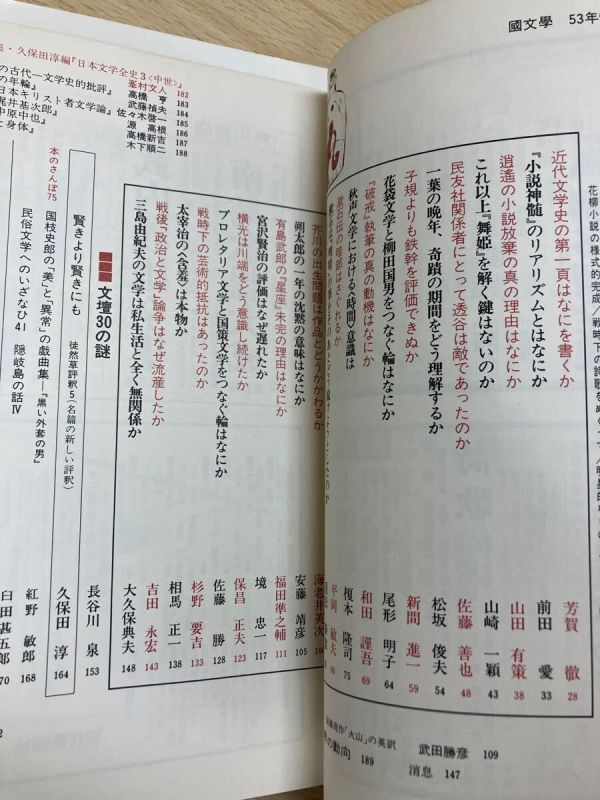 國文學 53年
花柳小説の様式的完成／戦時下の詩歌をめぐって
近代文学史の第一頁はなにを書くか 芳賀 徹 28
『小説神髄』のリアリズムとはなにか 前田 愛 33
逍遥の小説放棄の真の理由はなにか 山田 有策 38
これ以上『舞姫』を解く鍵はないのか 山崎 一穎 43
民友社関係者にとって透谷は敵であったのか 佐藤 善也 48
一葉の晩年、奇蹟の期間をどう理解するか 松坂 俊夫 54
子規よりも鉄幹を評価できぬか 新間 進一 59
花袋文学と柳田国男をつなぐ輪はなにか 尾形 明子 64
『破戒』執筆の真の動機はなにか 和田 謹吾 69
秋声文学における時間意識は 榎本 隆司 75
漱石伝の暗部はさぐれるか 平岡 敏夫 80
の英訳 武田勝彦 109
の動向 189
消息 147
芥川の出生問題は作品とどうかかわるか 海老井英次
朔太郎の一年の沈黙の意味はなにか 安藤 靖彦 105
有島武郎の『星座』未完の理由はなにか 福田準之輔 111
宮沢賢治の評価はなぜ遅れたか 境 忠一
横光は川端をどう意識し続けたか 保昌 正夫
プロレタリア文学と国策文学をつなぐ輪はなにか 佐藤 勝
戦時下の芸術的抵抗はあったのか 杉野 要吉 133
太宰治の〈含羞〉は本物か 相馬 正一 138
戦後「政治と文学」論争はなぜ流産したか 吉田 永宏 143
三島由紀夫の文学は私生活と全く無関係か 大久保典夫 148
文壇30の謎 長谷川 泉 153
賢きより賢きにも 徒然草評釈5（名篇の新しい評釈） 久保田 淳 164
本のさんぽ75 国枝史郎の「美」と「異常」の戯曲集『黒い外套の男』 紅野 敏郎 168
民俗文学へのいざなひ41 隠岐島の話Ⅳ 臼田甚五郎 70
・久保田淳編『日本文学全史3〈中世〉』 峯村文人 182
の古代―文学史的批評』 高橋 亨 183
の年輪』 武藤禎夫 184
日本キリスト者文学論』 佐々木啓一 185
梶井基次郎』 源高根 186
中原中也』 高橋新吉 187
と身体』 木下順二 188